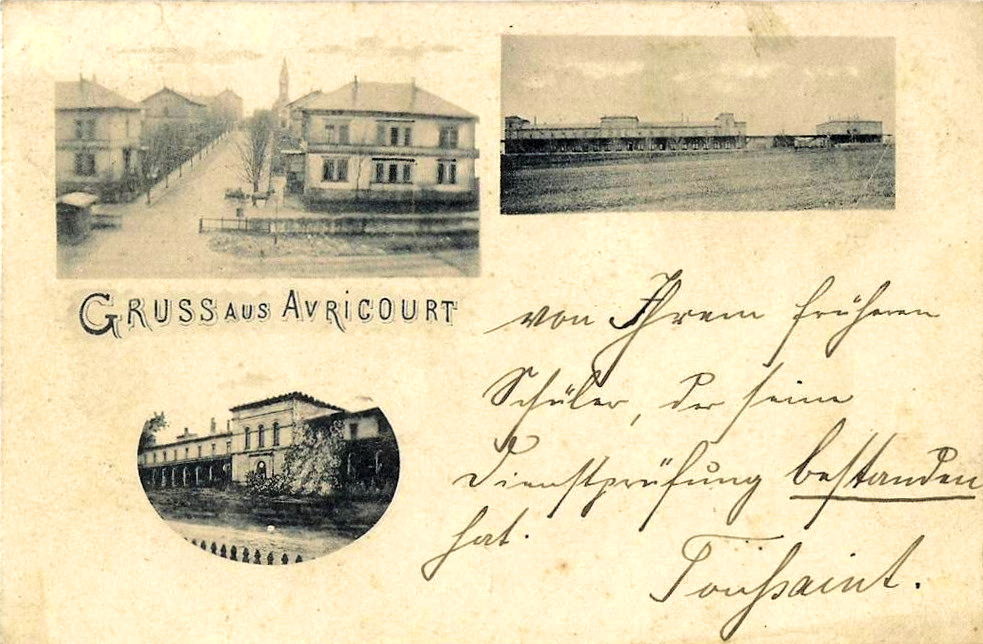 GRUSS AUS AVRICOURT
von Ihrem früheren
Schüler, der seine
Dienstprüfung bestanden
hat.
Toussaint.